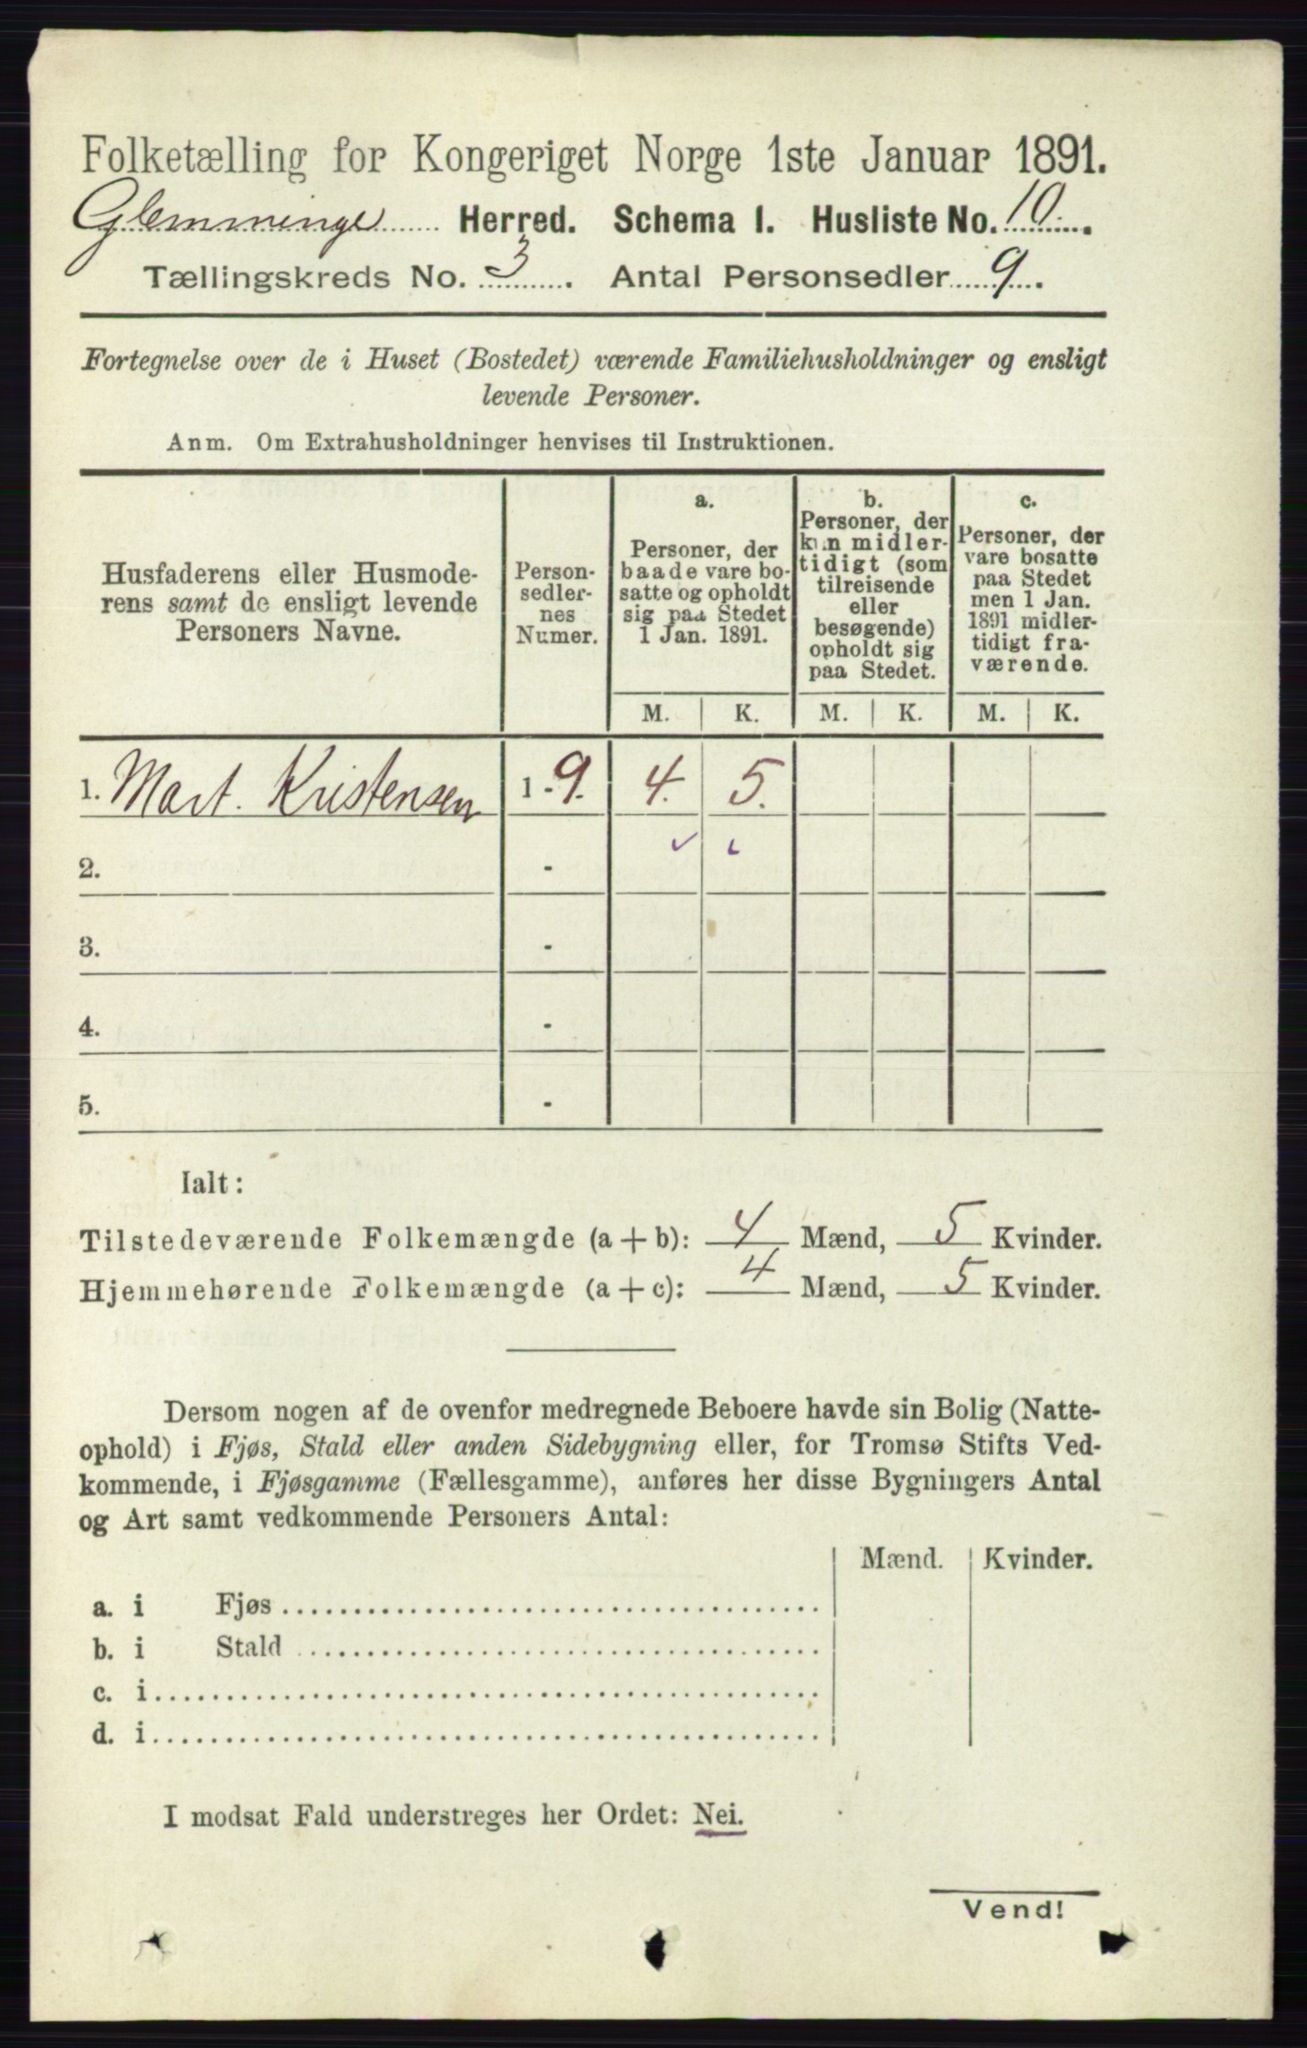 Folketælling for Kongeriget Norge 1ste Januar 1891.
Glemminge Herred. Schema I. Husliste No. 10.
Tællingskreds No. 3. Antal Personsedler 9.
Fortegnelse over de i Huset (Bostedet) værende Familiehusholdninger og ensligt
levende Personer.
Anm. Om Extrahusholdninger henvises til Instruktionen.
Husfaderens eller Husmode-
rens samt de ensligt levende
Personers Navne.
Person-
sedler-
nes
Numer.
a.
Personer, der
baade vare bo-
satte og opholdt
sig paa Stedet
1 Jan. 1891.
b.
Personer, der
kun midler-
tidigt (som
tilreisende
eller
besøgende)
opholdt sig
paa Stedet.
c.
Personer, der
vare bosatte
paa Stedet
men 1 Jan.
1891 midler-
tidigt fra-
værende.
M. K. M. K. M. K.
1. Mart. Kristensen 1-9. 4. 5.
2. -
3. -
4. -
5. -
Ialt:
Tilstedeværende Folkemængde (a+b): 4 Mænd, 5 Kvinder.
Hjemmehørende Folkemængde (a+c): 4 Mænd, 5 Kvinder.
Dersom nogen af de ovenfor medregnede Beboere havde sin Bolig (Natte-
ophold) i Fjøs, Stald eller anden Sidebygning eller, for Tromsø Stifts Ved-
kommende, i Fjøsgamme (Fællesgamme), anføres her disse Bygningers Antal
og Art samt vedkommende Personers Antal:
Mænd. Kvinder.
a. i Fjøs
b. i Stald
c. i
d. i
I modsat Fald understreges her Ordet: Nei.
Vend!